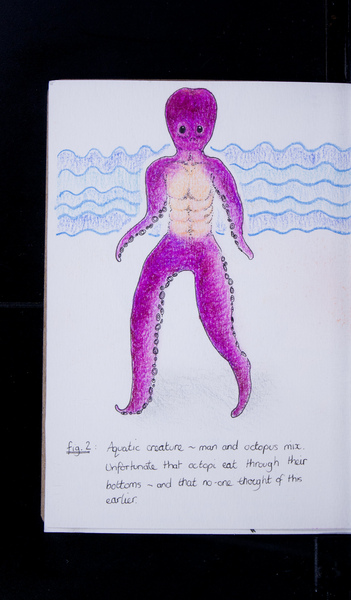 fig. 2. Aquatic creature ~ man and octopus mix.
Unfortunate that octopi eat through their
bottoms ~ and that no-one thought of this
earlier.